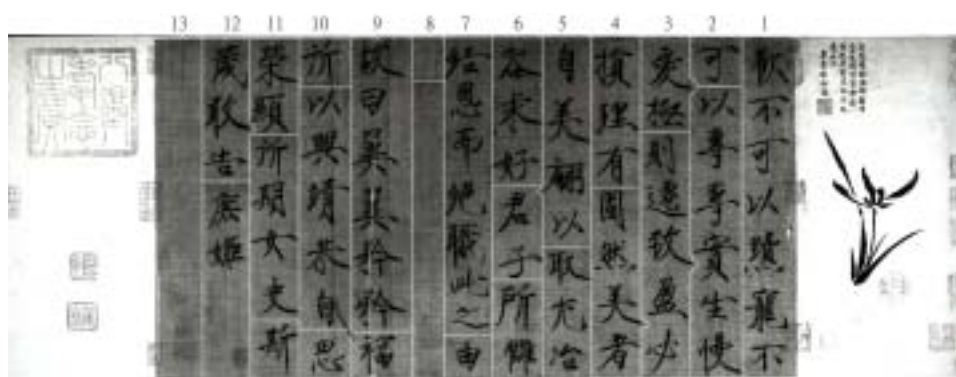 13 12 11 10 9 8 7 6 5 4 3 2 1
歡不可以黷寵不
可以專專實生慢
愛極則遷致盈必
損理有固然美者
自美翩以取尤冶
容求好君子所讎
結恩而絶職此之由
故曰翼翼矜矜福
所以興靖恭自思
榮顯所期女史斯
箴敢告庶姬